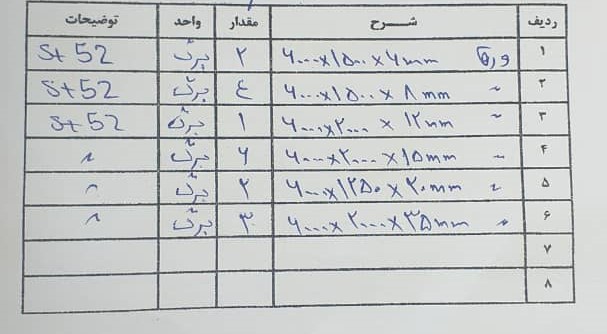 ردیف شرح مقدار واحد توضیحات
۱ ورق ۶۰۰۰x۱۵۰۰x۶mm ۲ برگ St 52
۲ " ۶۰۰۰x۱۵۰۰x۸mm ۴ برگ St 52
۳ " ۶۰۰۰x۲۰۰۰x۱۲mm ۱ برگ St 52
۴ " ۶۰۰۰x۲۰۰۰x۱۵mm ۶ برگ "
۵ " ۶۰۰۰x۱۲۵۰x۲۰mm ۲ برگ "
۶ " ۶۰۰۰x۲۰۰۰x۳۵mm ۳ برگ "
۷
۸